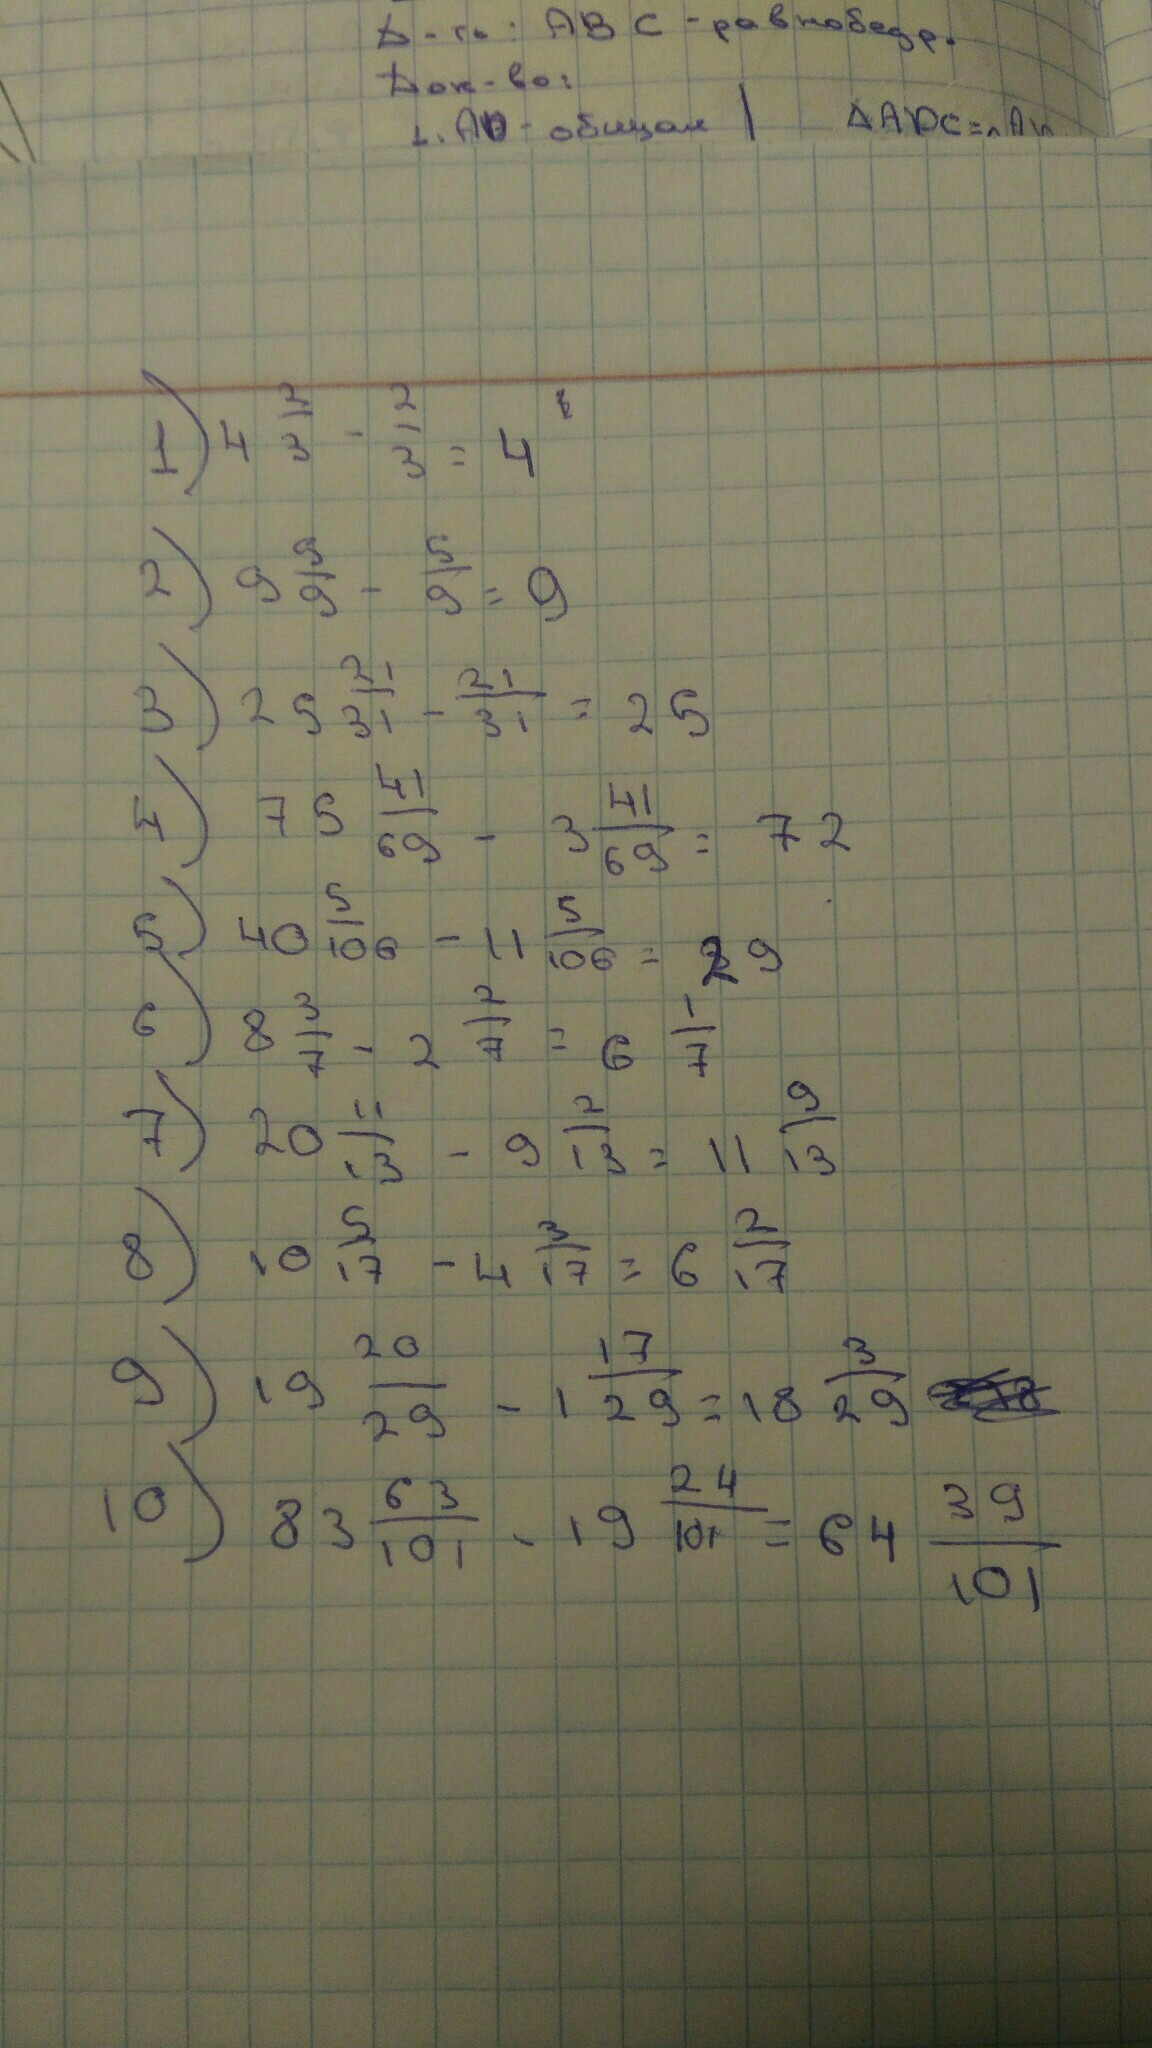 Д-ть: ABC - равнобедр.
Док-во:
1. AD - общая | ΔADC=
1) 4 2/3 - 2/3 = 4
2) 9 5/9 - 5/9 = 9
3) 25 21/31 - 21/31 = 25
4) 75 41/69 - 3 41/69 = 72
5) 40 5/106 - 11 5/106 = 29
6) 8 3/7 - 2 2/7 = 6 1/7
7) 20 11/13 - 9 2/13 = 11 9/13
8) 10 5/17 - 4 3/17 = 6 2/17
9) 19 20/29 - 1 17/29 = 18 3/29
10) 83 63/101 - 19 24/101 = 64 39/101